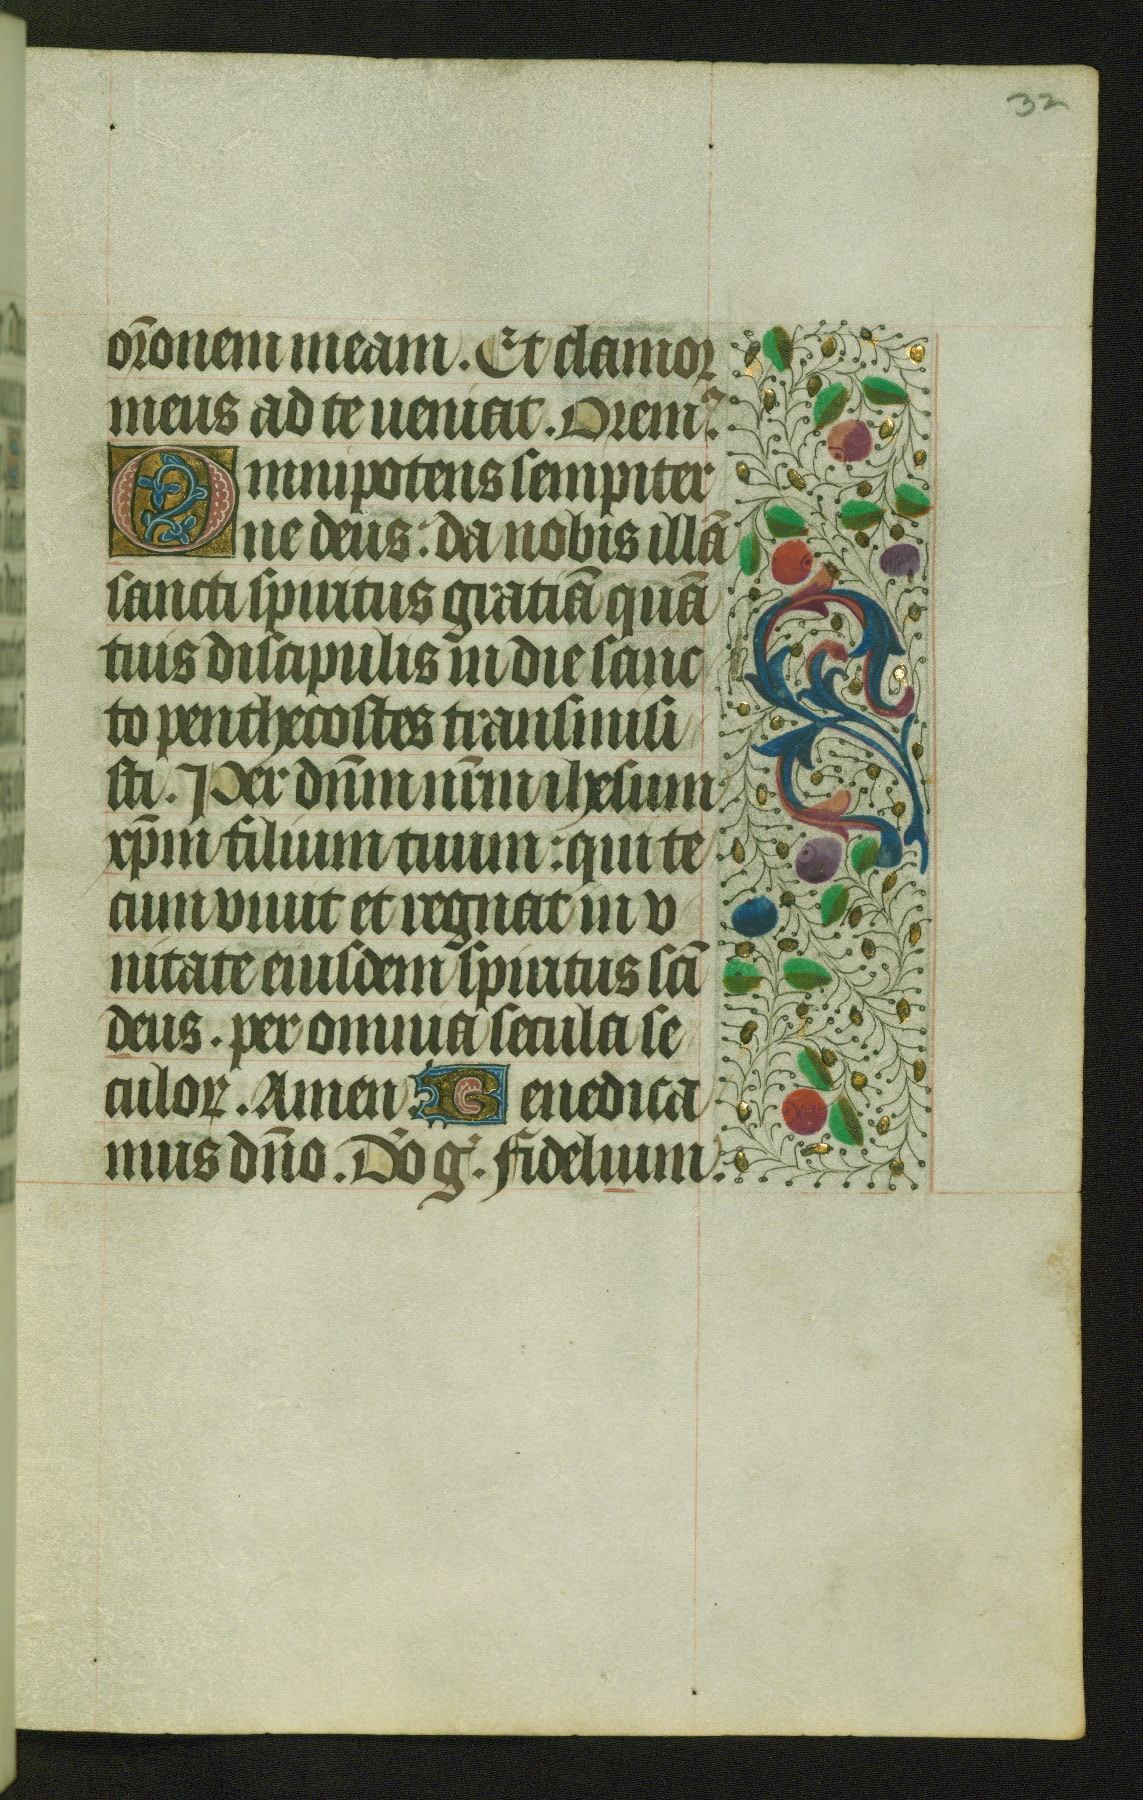 32
or̄onem meam. Et clamor
meus ad te ueniat. Orem9.
Omnipotens sempiter
ne deus: da nobis illā
sancti spiritus gratiā quā
tuis discipulis in die sanc
to penthecostes transmisi
sti. Per dn̄m nr̄m ihesum
xp̄m filium tuum: qui te
cum viuit et regnat in v
nitate eiusdem spiritus sc̄i
deus. per omnia secula se
culoꝝ. Amen. Benedica
mus dn̄o. Dō g̅. Fidelium.